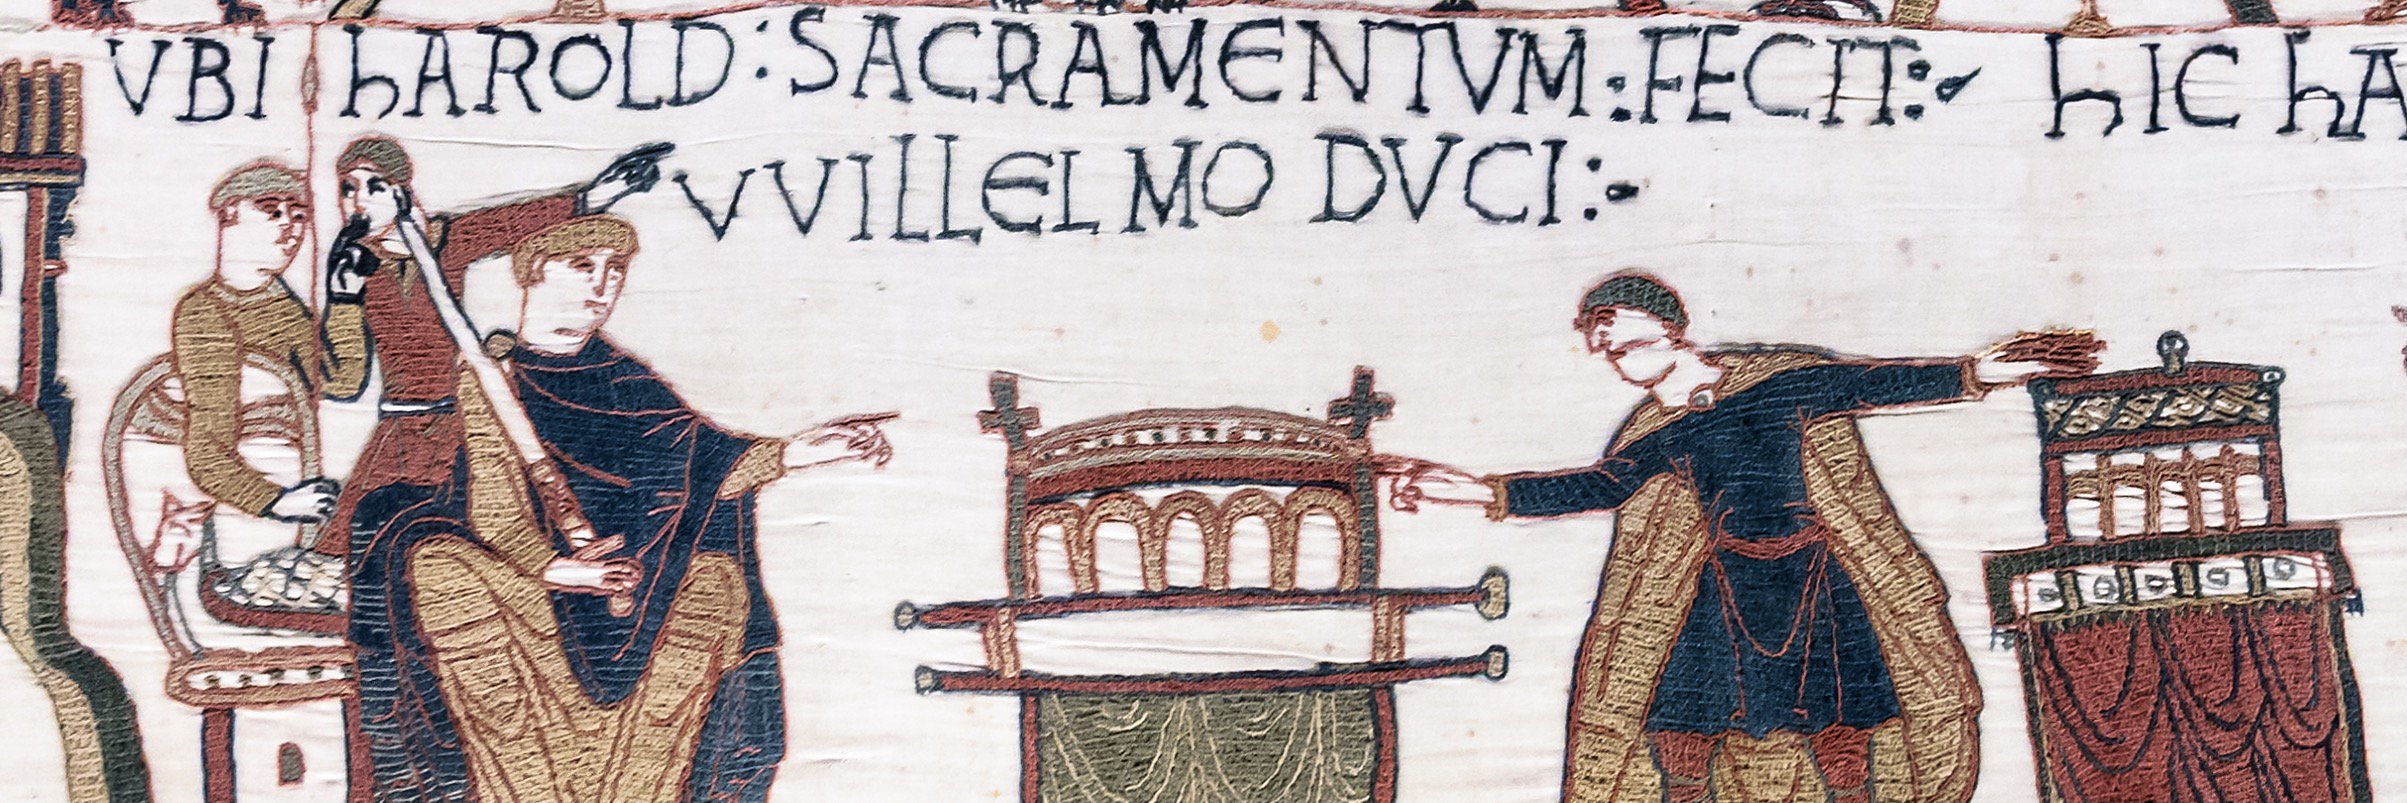 VBI hAROLD : SACRAMENTVM : FECIT : hIC hA
VVILLELMO DVCI :